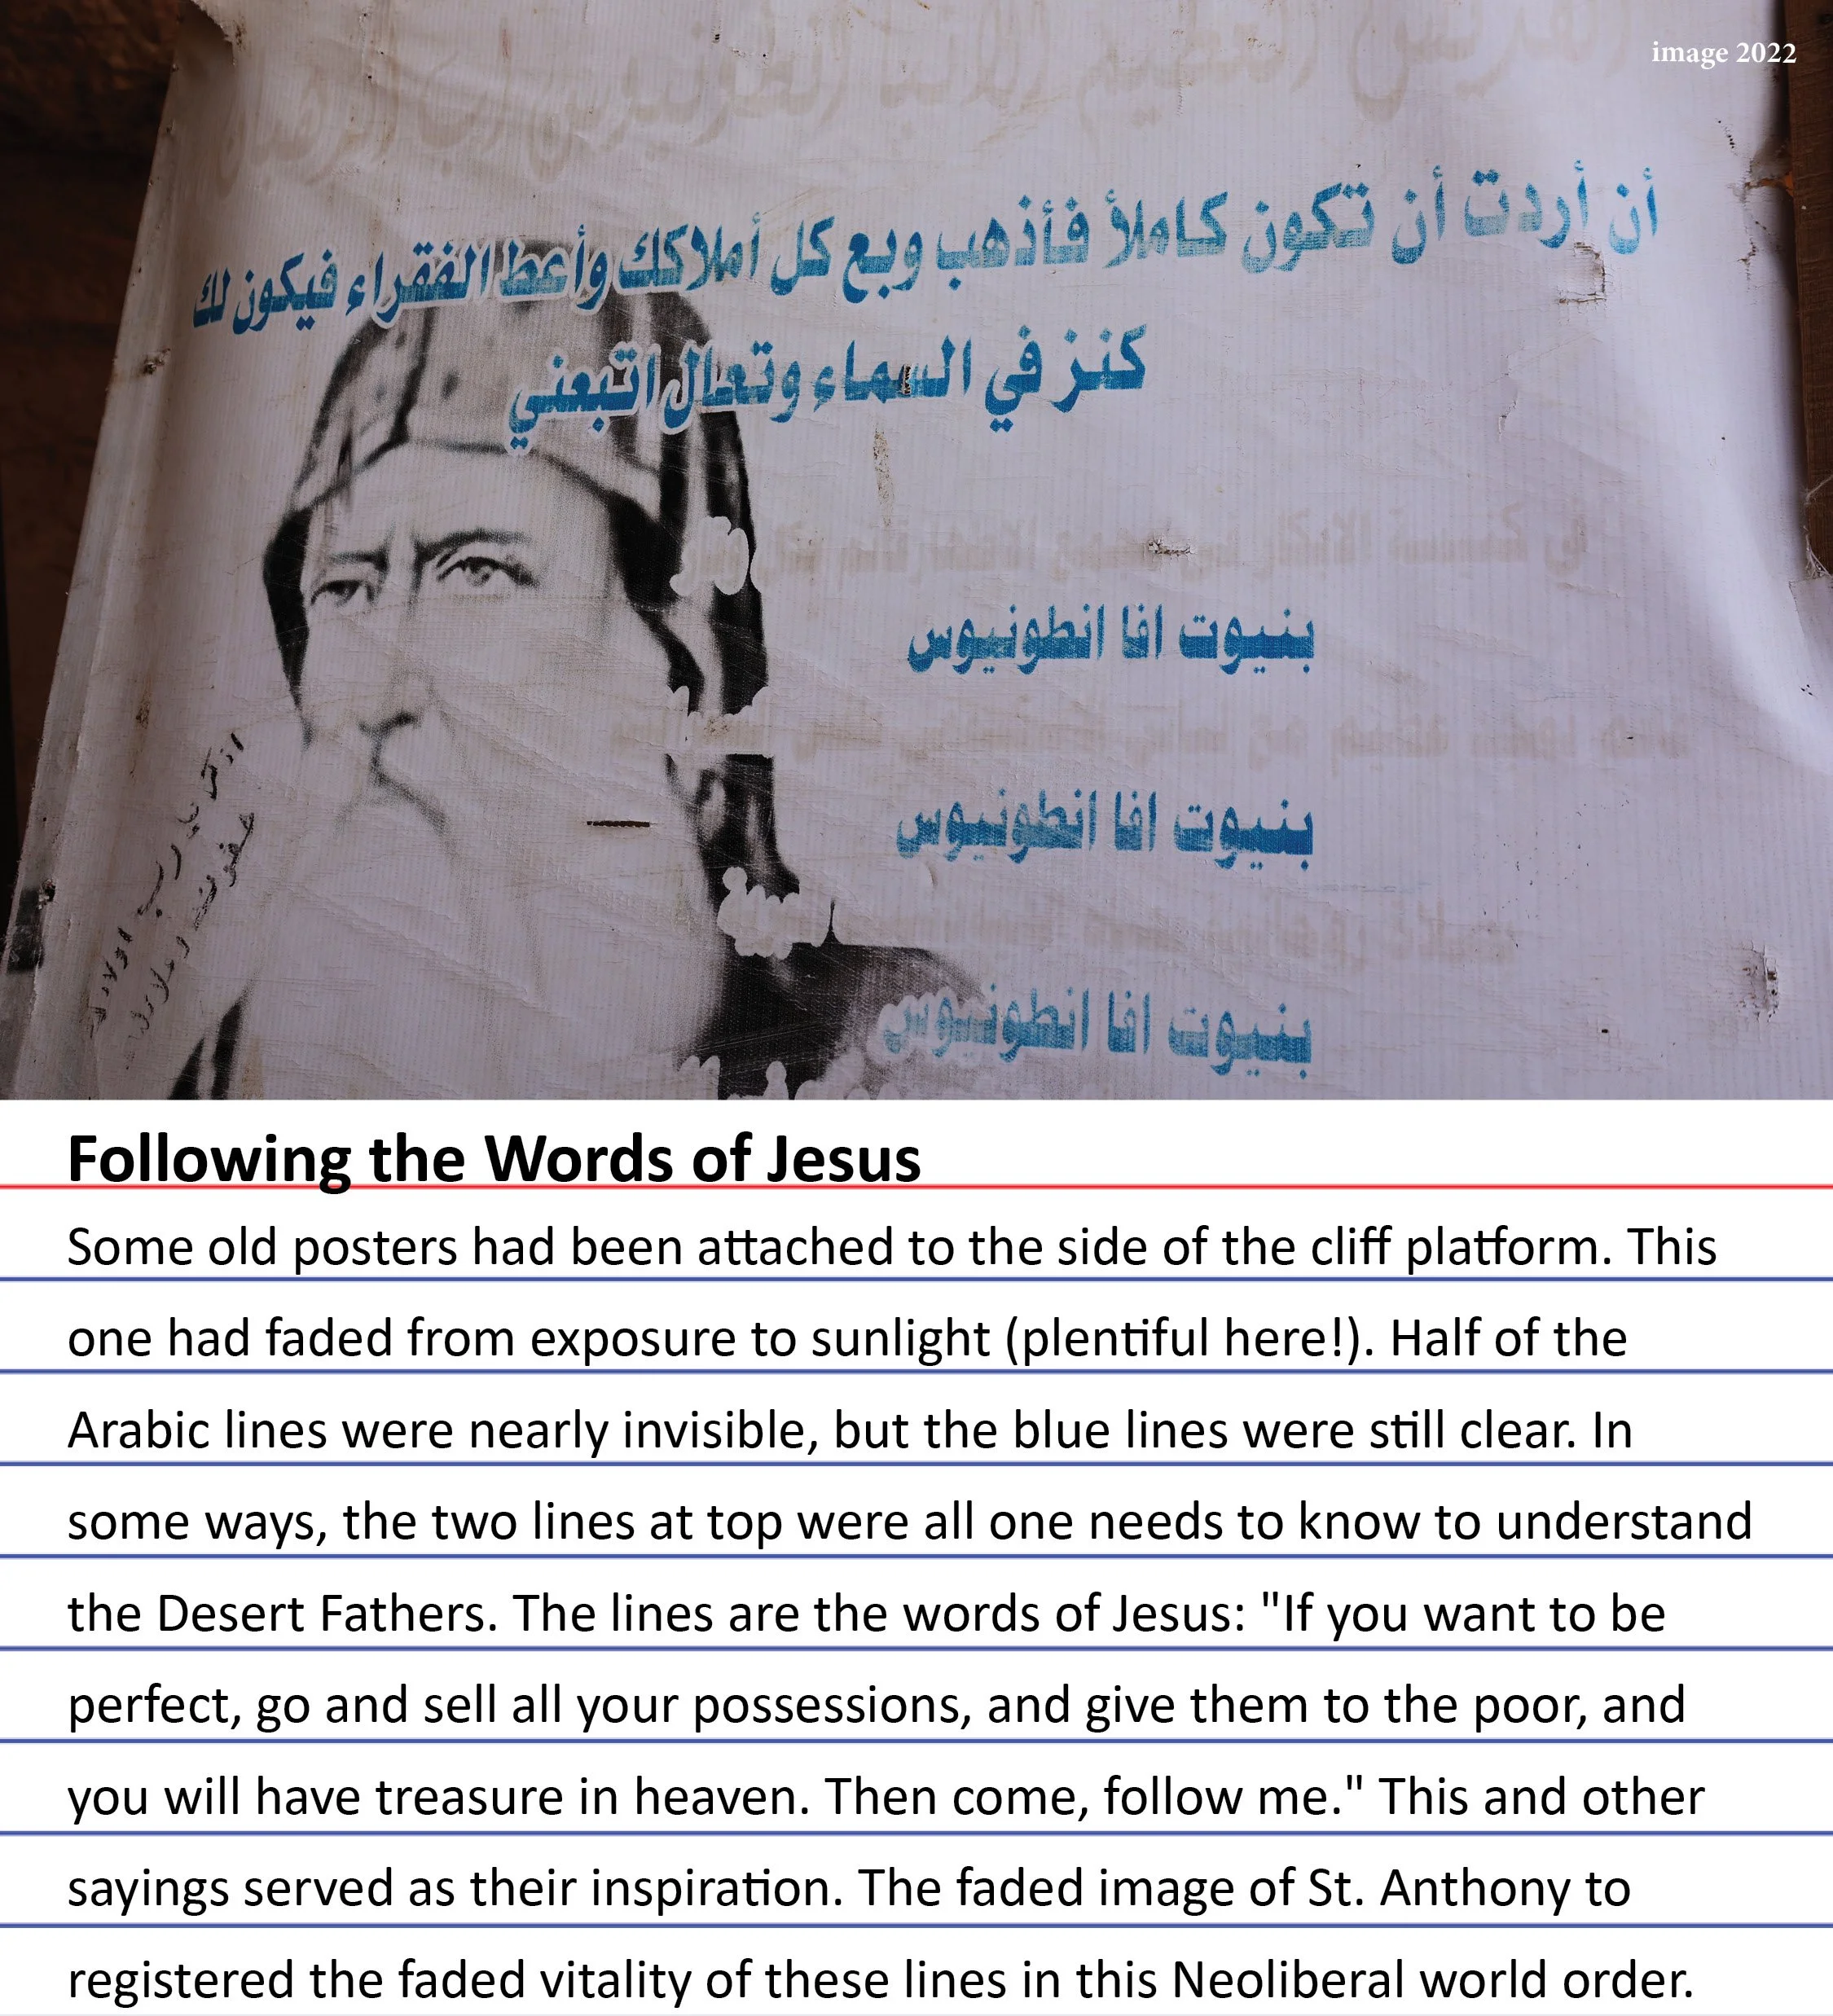 image 2022
القديس العظيم الانبا انطونيوس اب الرهبان
أن أردت أن تكون كاملأ فأذهب وبع كل أملاكك وأعط الفقراء فيكون لك
كنز في السماء وتعال اتبعني
بنيوت افا انطونيوس
بنيوت افا انطونيوس
بنيوت افا انطونيوس
Following the Words of Jesus
Some old posters had been attached to the side of the cliff platform. This
one had faded from exposure to sunlight (plentiful here!). Half of the
Arabic lines were nearly invisible, but the blue lines were still clear. In
some ways, the two lines at top were all one needs to know to understand
the Desert Fathers. The lines are the words of Jesus: "If you want to be
perfect, go and sell all your possessions, and give them to the poor, and
you will have treasure in heaven. Then come, follow me." This and other
sayings served as their inspiration. The faded image of St. Anthony to
registered the faded vitality of these lines in this Neoliberal world order.